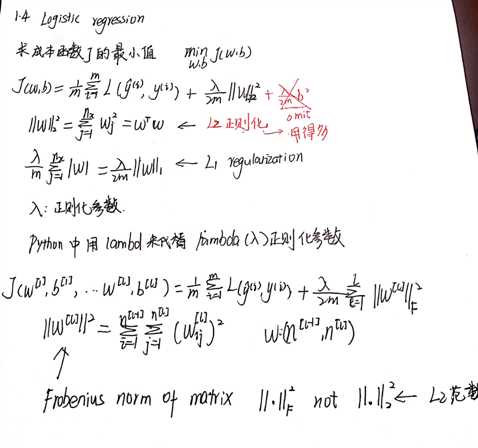 1.4 Logistic regression
求成本函数J的最小值 min_{w,b} J(w,b)
J(w,b) = 1/m Σ_{i=1}^{m} L(ŷ^(i), y^(i)) + λ/2m ||w||₂² + λ/2m b² omit
||w||₂² = Σ_{j=1}^{nx} wj² = wᵀw ← L2 正则化 → 用得多
λ/m Σ_{j=1}^{nx} |w| = λ/2m ||w||₁ ← L₁ regularization
λ: 正则化参数.
Python 中用 lambd 来代替 lambda (λ) 正则化参数
J(w^[1], b^[1], ... w^[L], b^[L]) = 1/m Σ_{i=1}^{m} L(ŷ^(i), y^(i)) + λ/2m Σ_{l=1}^{L} ||w^[l]||_F²
||w^[l]||² = Σ_{i=1}^{n^[l-1]} Σ_{j=1}^{n^[l]} (w_ij^[l])² w:(n^[l-1], n^[l])
Frobenius norm of matrix ||·||_F² not ||·||₂² ← L2 范数